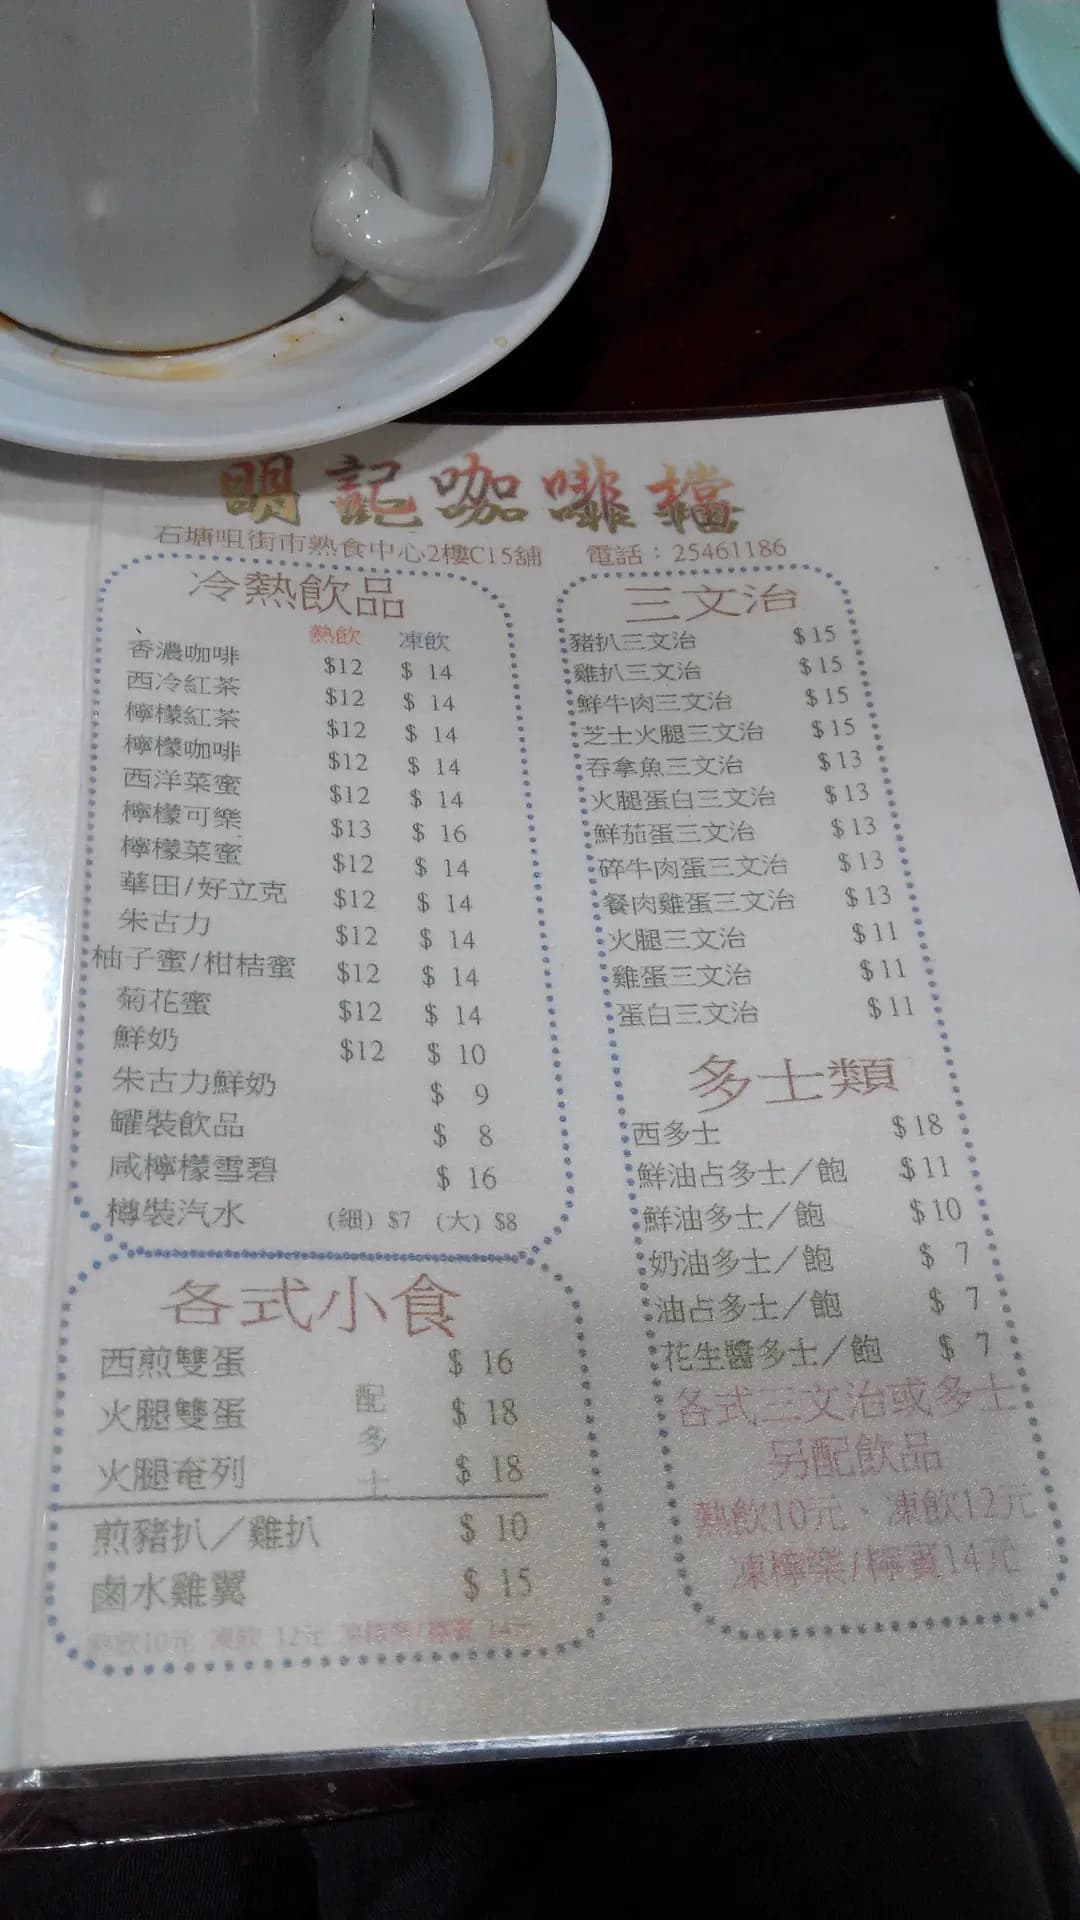 明記咖啡檔
石塘咀街市熟食中心2樓C15舖 電話：25461186
冷熱飲品
熱飲 凍飲
香濃咖啡 $12 $ 14
西冷紅茶 $12 $ 14
檸檬紅茶 $12 $ 14
檸檬咖啡 $12 $ 14
西洋菜蜜 $12 $ 14
檸檬可樂 $13 $ 16
檸檬菜蜜 $12 $ 14
華田/好立克 $12 $ 14
朱古力 $12 $ 14
柚子蜜/柑桔蜜 $12 $ 14
菊花蜜 $12 $ 14
鮮奶 $12 $ 10
朱古力鮮奶 $ 9
罐裝飲品 $ 8
咸檸檬雪碧 $ 16
樽裝汽水 (細) $7 (大) $8
各式小食
西煎雙蛋 $ 16
火腿雙蛋 $ 18
火腿奄列 $ 18
配多士
煎豬扒／雞扒 $ 10
鹵水雞翼 $ 15
熱飲10元 凍飲 12元 凍檸樂/檸賓 14元
三文治
豬扒三文治 $15
雞扒三文治 $15
鮮牛肉三文治 $15
芝士火腿三文治 $15
吞拿魚三文治 $13
火腿蛋白三文治 $13
鮮茄蛋三文治 $13
碎牛肉蛋三文治 $13
餐肉雞蛋三文治 $13
火腿三文治 $11
雞蛋三文治 $11
蛋白三文治 $11
多士類
西多士 $18
鮮油占多士／飽 $11
鮮油多士／飽 $10
奶油多士／飽 $ 7
油占多士／飽 $ 7
花生醬多士／飽 $ 7
各式三文治或多士
另配飲品
熱飲10元、凍飲12元
凍檸樂/檸賓14元